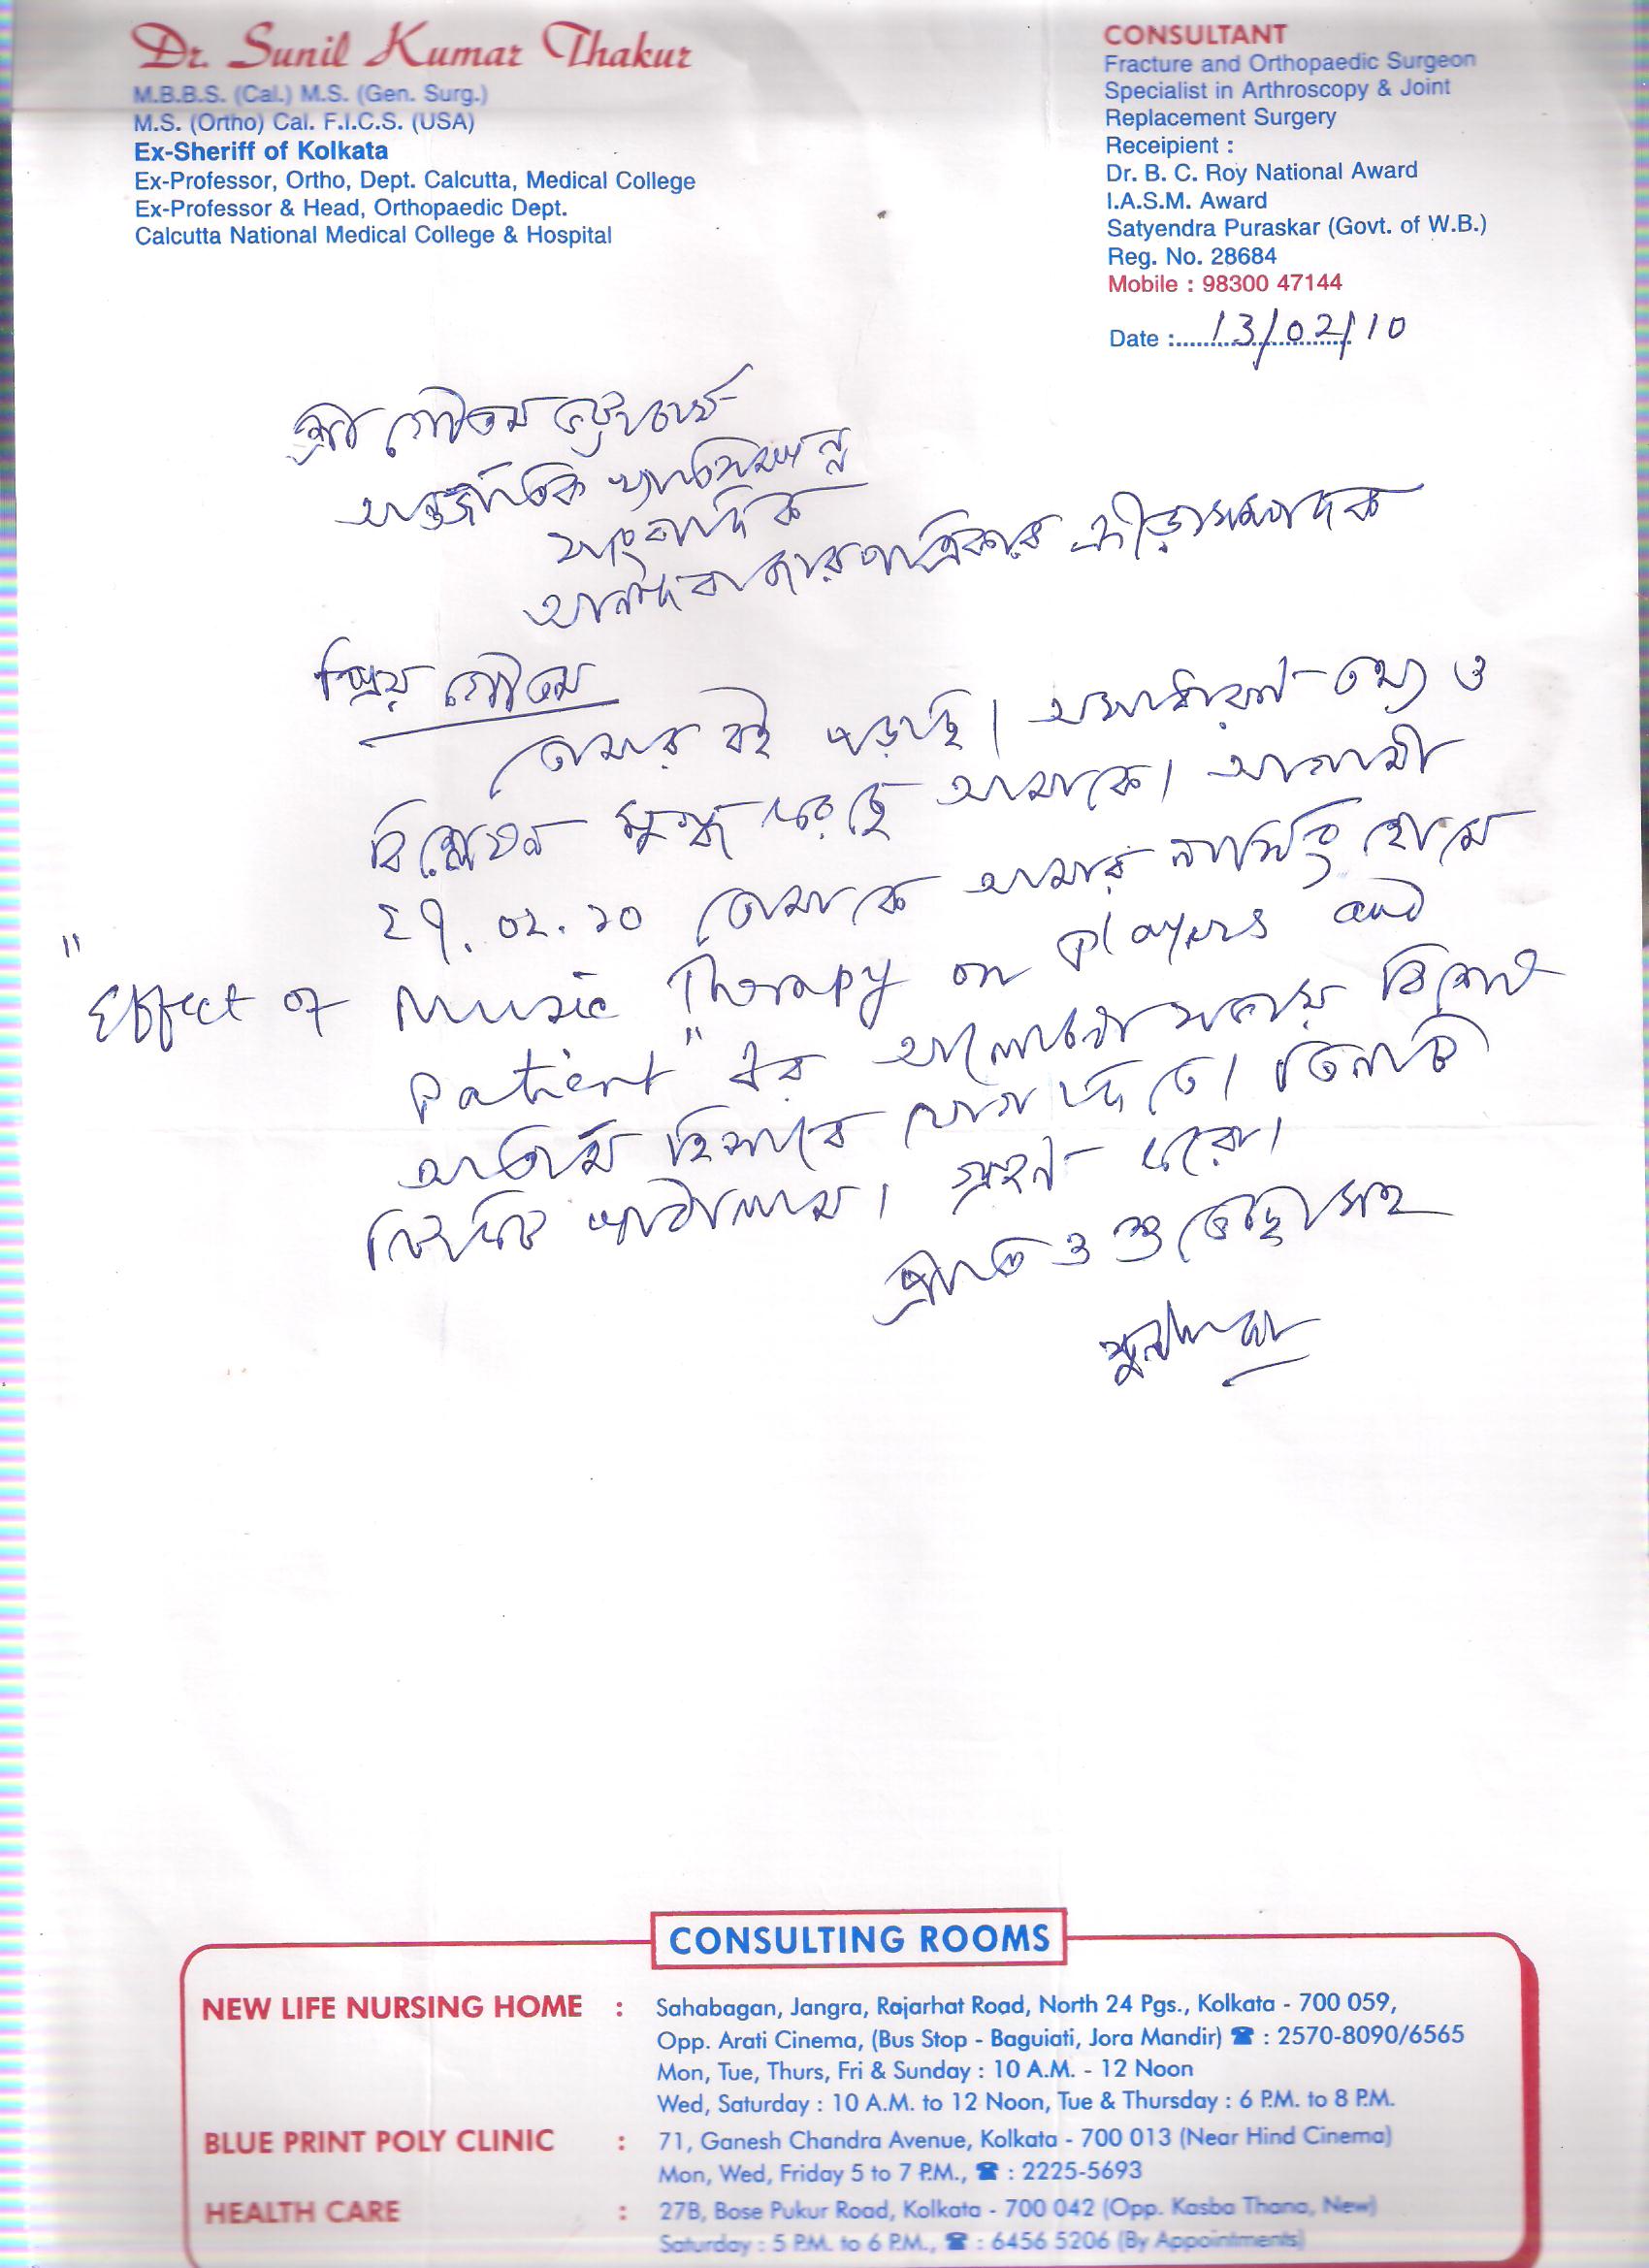 Dr. Sunil Kumar Thakur
M.B.B.S. (Cal.) M.S. (Gen. Surg.)
M.S. (Ortho) Cal. F.I.C.S. (USA)
Ex-Sheriff of Kolkata
Ex-Professor, Ortho, Dept. Calcutta, Medical College
Ex-Professor & Head, Orthopaedic Dept.
Calcutta National Medical College & Hospital
CONSULTANT
Fracture and Orthopaedic Surgeon
Specialist in Arthroscopy & Joint
Replacement Surgery
Receipient :
Dr. B. C. Roy National Award
I.A.S.M. Award
Satyendra Puraskar (Govt. of W.B.)
Reg. No. 28684
Mobile : 98300 47144
Date : 13/02/10
শ্রী গৌতম ভট্টাচার্য
আন্তর্জাতিক খ্যাতিসম্পন্ন
সাংবাদিক
আনন্দবাজার পত্রিকার ক্রীড়া সম্পাদক
প্রিয় গৌতম
তোমার বই পড়ছি। অসাধারণ তথ্য ও
বিশ্লেষণ মুগ্ধ করেছে আমাকে। আগামী
২৭.০২.১০ তোমাকে আমার নার্সিং হোমে
"Effect of Music Therapy on players and
patient" এর আলোচনাসভায় বিশেষ
অতিথি হিসাবে যোগ দিতে।
পাঠালাম। গ্রহণ করো।
প্রীতি ও শুভেচ্ছাসহ
সুনীলদা
CONSULTING ROOMS
NEW LIFE NURSING HOME : Sahabagan, Jangra, Rajarhat Road, North 24 Pgs., Kolkata - 700 059,
Opp. Arati Cinema, (Bus Stop - Baguiati, Jora Mandir) ☎ : 2570-8090/6565
Mon, Tue, Thurs, Fri & Sunday : 10 A.M. - 12 Noon
Wed, Saturday : 10 A.M. to 12 Noon, Tue & Thursday : 6 P.M. to 8 P.M.
BLUE PRINT POLY CLINIC : 71, Ganesh Chandra Avenue, Kolkata - 700 013 (Near Hind Cinema)
Mon, Wed, Friday 5 to 7 P.M., ☎ : 2225-5693
HEALTH CARE : 27B, Bose Pukur Road, Kolkata - 700 042 (Opp. Kasba Thana, New)
Saturday : 5 P.M. to 6 P.M., ☎ : 6456 5206 (By Appointments)